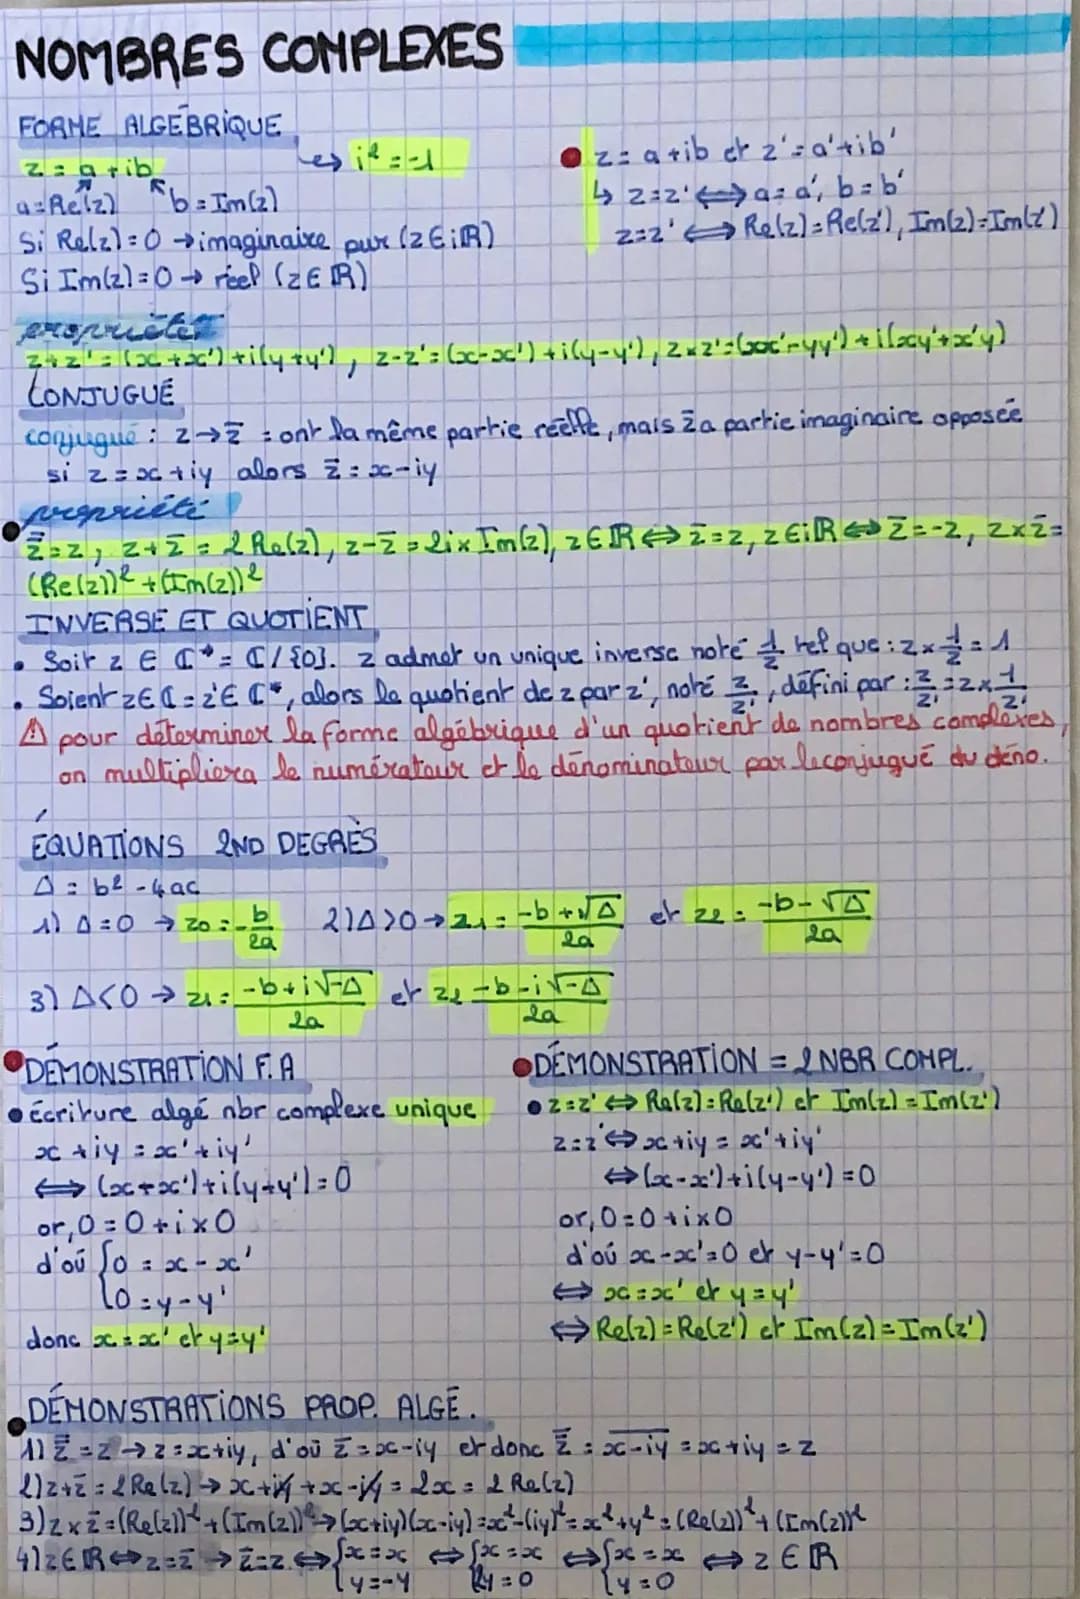 NOMBRES COMPLEXES
FORME ALGÉBRIQUE
z = a + ib
↳ i² = -1
a = Re(z) b = Im(z)
Si Re(z) = 0 → imaginaire pur (z ∈ iℝ)
Si Im(z) = 0 → réel (z ∈ ℝ)
z = a + ib et z' = a' + ib'
↳ z = z' ⟺ a = a', b = b'
z = z' ⟺ Re(z) = Re(z'), Im(z) = Im(z')
propriétés
z + z' = (x + x') + i(y + y'), z - z' = (x - x') + i(y - y'), z × z' = (xx' - yy') + i(xy' + x'y)
CONJUGUÉ
conjugué : z → z̄ = ont la même partie réelle, mais z̄ a partie imaginaire opposée
si z = x + iy alors z̄ = x - iy
propriété
z̿ = z, z + z̄ = 2 Re(z), z - z̄ = 2i × Im(z), z ∈ ℝ ⟺ z̄ = z, z ∈ iℝ ⟺ z̄ = -z, z × z̄ =
(Re(z))² + (Im(z))²
INVERSE ET QUOTIENT
• Soit z ∈ ℂ* = ℂ/{0}. z admet un unique inverse noté 1/z tel que : z × 1/z = 1
• Soient z ∈ ℂ = z' ∈ ℂ*, alors le quotient de z par z', noté z/z', défini par : z/z' = z × 1/z'
⚠ pour déterminer la forme algébrique d'un quotient de nombres complexes,
on multipliera le numérateur et le dénominateur par le conjugué du déno.
ÉQUATIONS 2ND DEGRÈS
Δ = b² - 4ac
1) Δ = 0 → z0 = -b/2a 2) Δ > 0 → z1 = (-b + √Δ)/2a et z2 = (-b - √Δ)/2a
3) Δ < 0 → z1 = (-b + i√-Δ)/2a et z2 (-b - i√-Δ)/2a
DÉMONSTRATION F.A
• écriture algé nbr complexe unique
x + iy = x' + iy'
⟺ (x + x') + i(y + y') = 0
or, 0 = 0 + i × 0
d'où {0 = x - x'
{0 = y - y'
donc x = x' et y = y'
DÉMONSTRATION = 2 NBR COMPL.
• z = z' ⟺ Re(z) = Re(z') et Im(z) = Im(z')
z = z' ⟺ x + iy = x' + iy'
⟺ (x - x') + i(y - y') = 0
or, 0 = 0 + i × 0
d'où x - x' = 0 et y - y' = 0
⟺ x = x' et y = y'
⟺ Re(z) = Re(z') et Im(z) = Im(z')
DÉMONSTRATIONS PROP. ALGÉ.
1) z̿ = z → z = x + iy, d'où z̄ = x - iy et donc z̿ = x̅-̅i̅y̅ = x + iy = z
2) z + z̄ = 2 Re(z) → x + iy + x - iy = 2x = 2 Re(z)
3) z × z̄ = (Re(z))² + (Im(z))² → (x + iy)(x - iy) = x² - (iy)² = x² + y² = (Re(z))² + (Im(z))²
4) z ∈ ℝ ⟺ z = z̄ → z̄ = z ⟺ {x = x ⟺ {x = x ⟺ {x = x ⟺ z ∈ ℝ
{y = -y {2y = 0 {y = 0